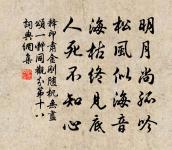 明月尚孤吟
松風似海音
海枯終見底
人死不知心
釋印肅金剛隨机無盡
頌一體同觀分第十八
詞典網集